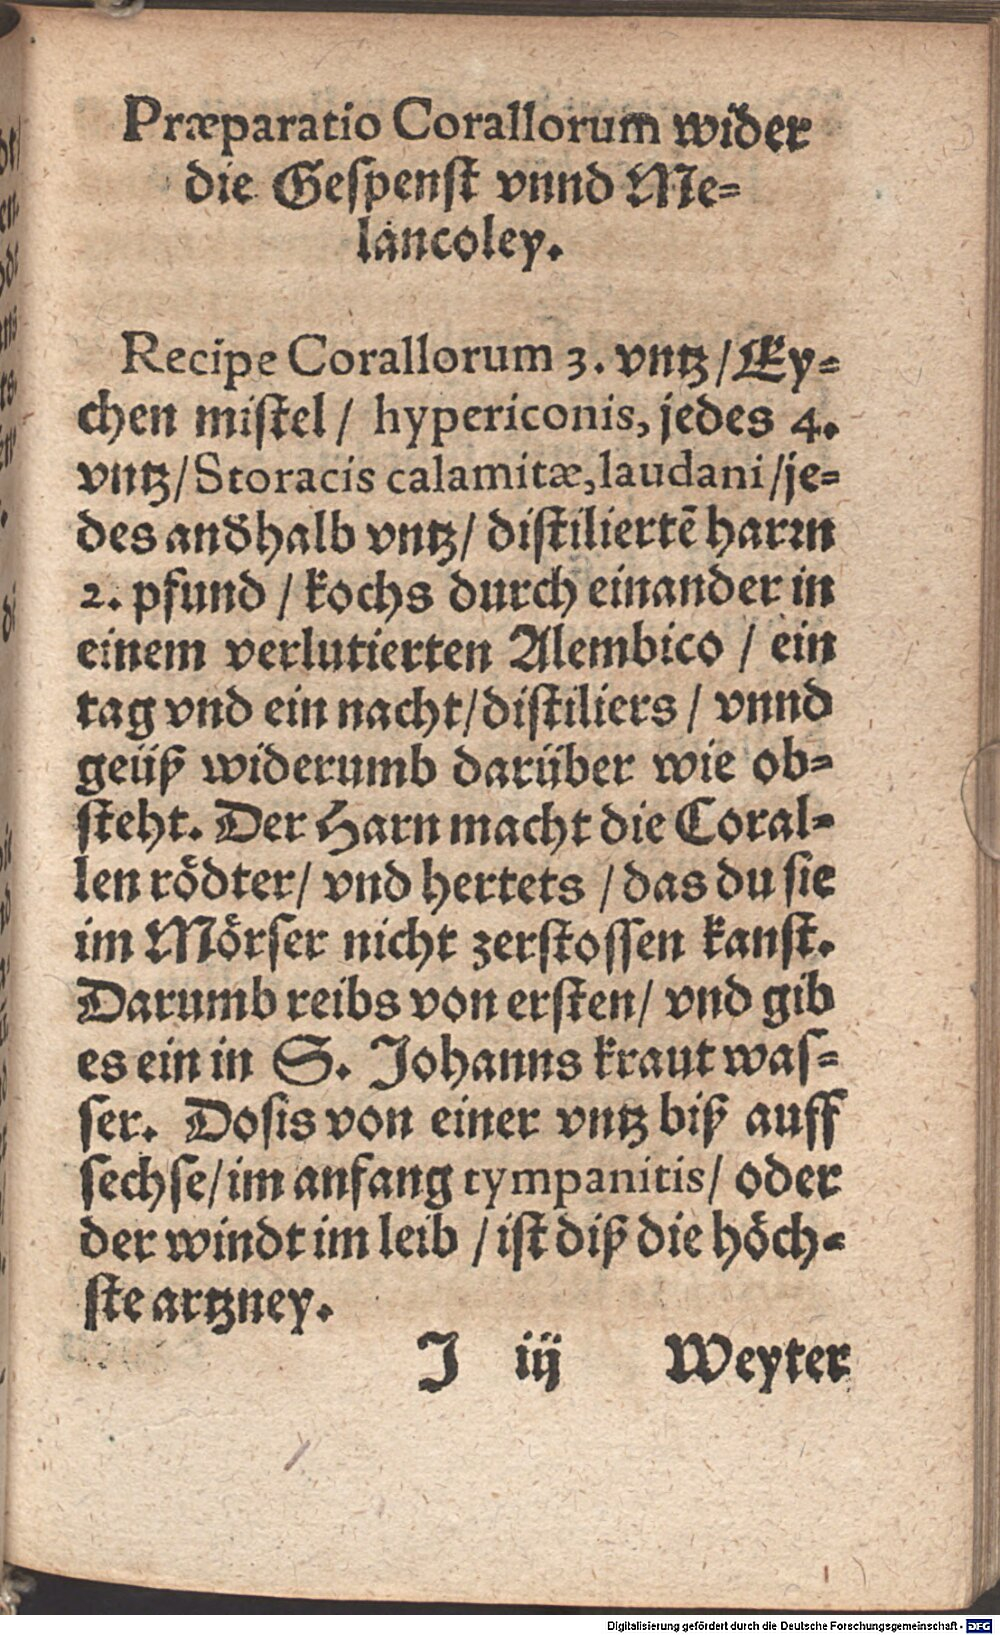 Præparatio Corallorum wider
die Gespenst vnnd Me=
lancoley.
Recipe Corallorum 3. vntz / Ey=
chen mistel / hypericonis, jedes 4.
vntz / Storacis calamitæ, laudani / je=
des andhalb vntz / distiliertē harm
2. pfund / kochs durch einander in
einem verlutierten Alembico / ein
tag vnd ein nacht / distiliers / vnnd
geüß widerumb darüber wie ob=
steht. Der Harn macht die Coral=
len rödter / vnd hertets / das du sie
im Mörser nicht zerstossen kanst.
Darumb reibs von ersten / vnd gib
es ein in S. Johanns kraut was=
ser. Dosis von einer vntz biß auff
sechse / im anfang tympanitis / oder
der windt im leib / ist diß die höch=
ste artzney.
J iij Weyter
Digitalisierung gefördert durch die Deutsche Forschungsgemeinschaft - DFG